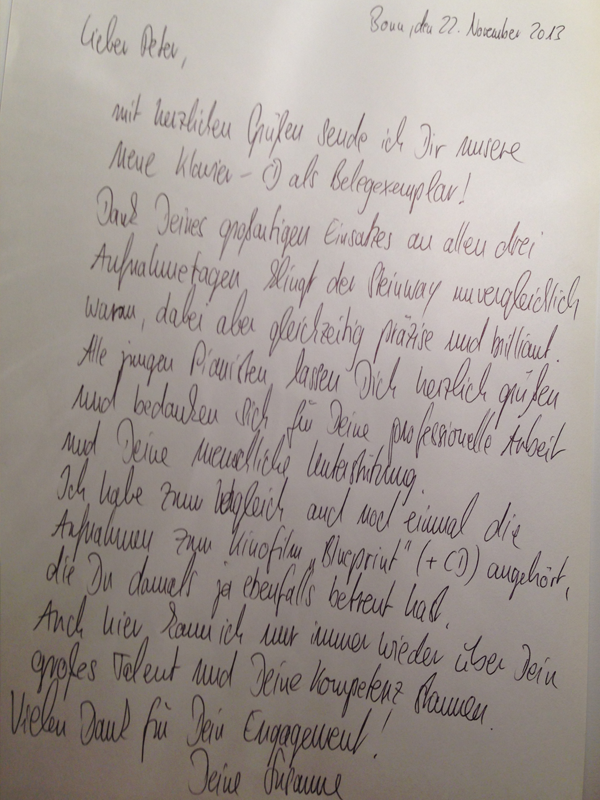 Bonn, den 22. November 2013
Lieber Peter,
mit herzlichen Grüßen sende ich Dir unsere
neue Klavier-CD als Belegexemplar!
Dank Deines großartigen Einsatzes an allen drei
Aufnahmetagen klingt der Steinway unvergleichlich
warm, dabei aber gleichzeitig präzise und brilliant.
Alle jungen Pianisten lassen Dich herzlich grüßen
und bedanken sich für Deine professionelle Arbeit
und Deine menschliche Unterstützung.
Ich habe zum Vergleich auch noch einmal die
Aufnahmen zum Kinofilm „Blueprint" (+CD) angehört,
die Du damals ja ebenfalls betreut hast.
Auch hier kann ich nur immer wieder über Dein
großes Talent und Deine Kompetenz staunen.
Vielen Dank für Dein Engagement!
Deine Susanne